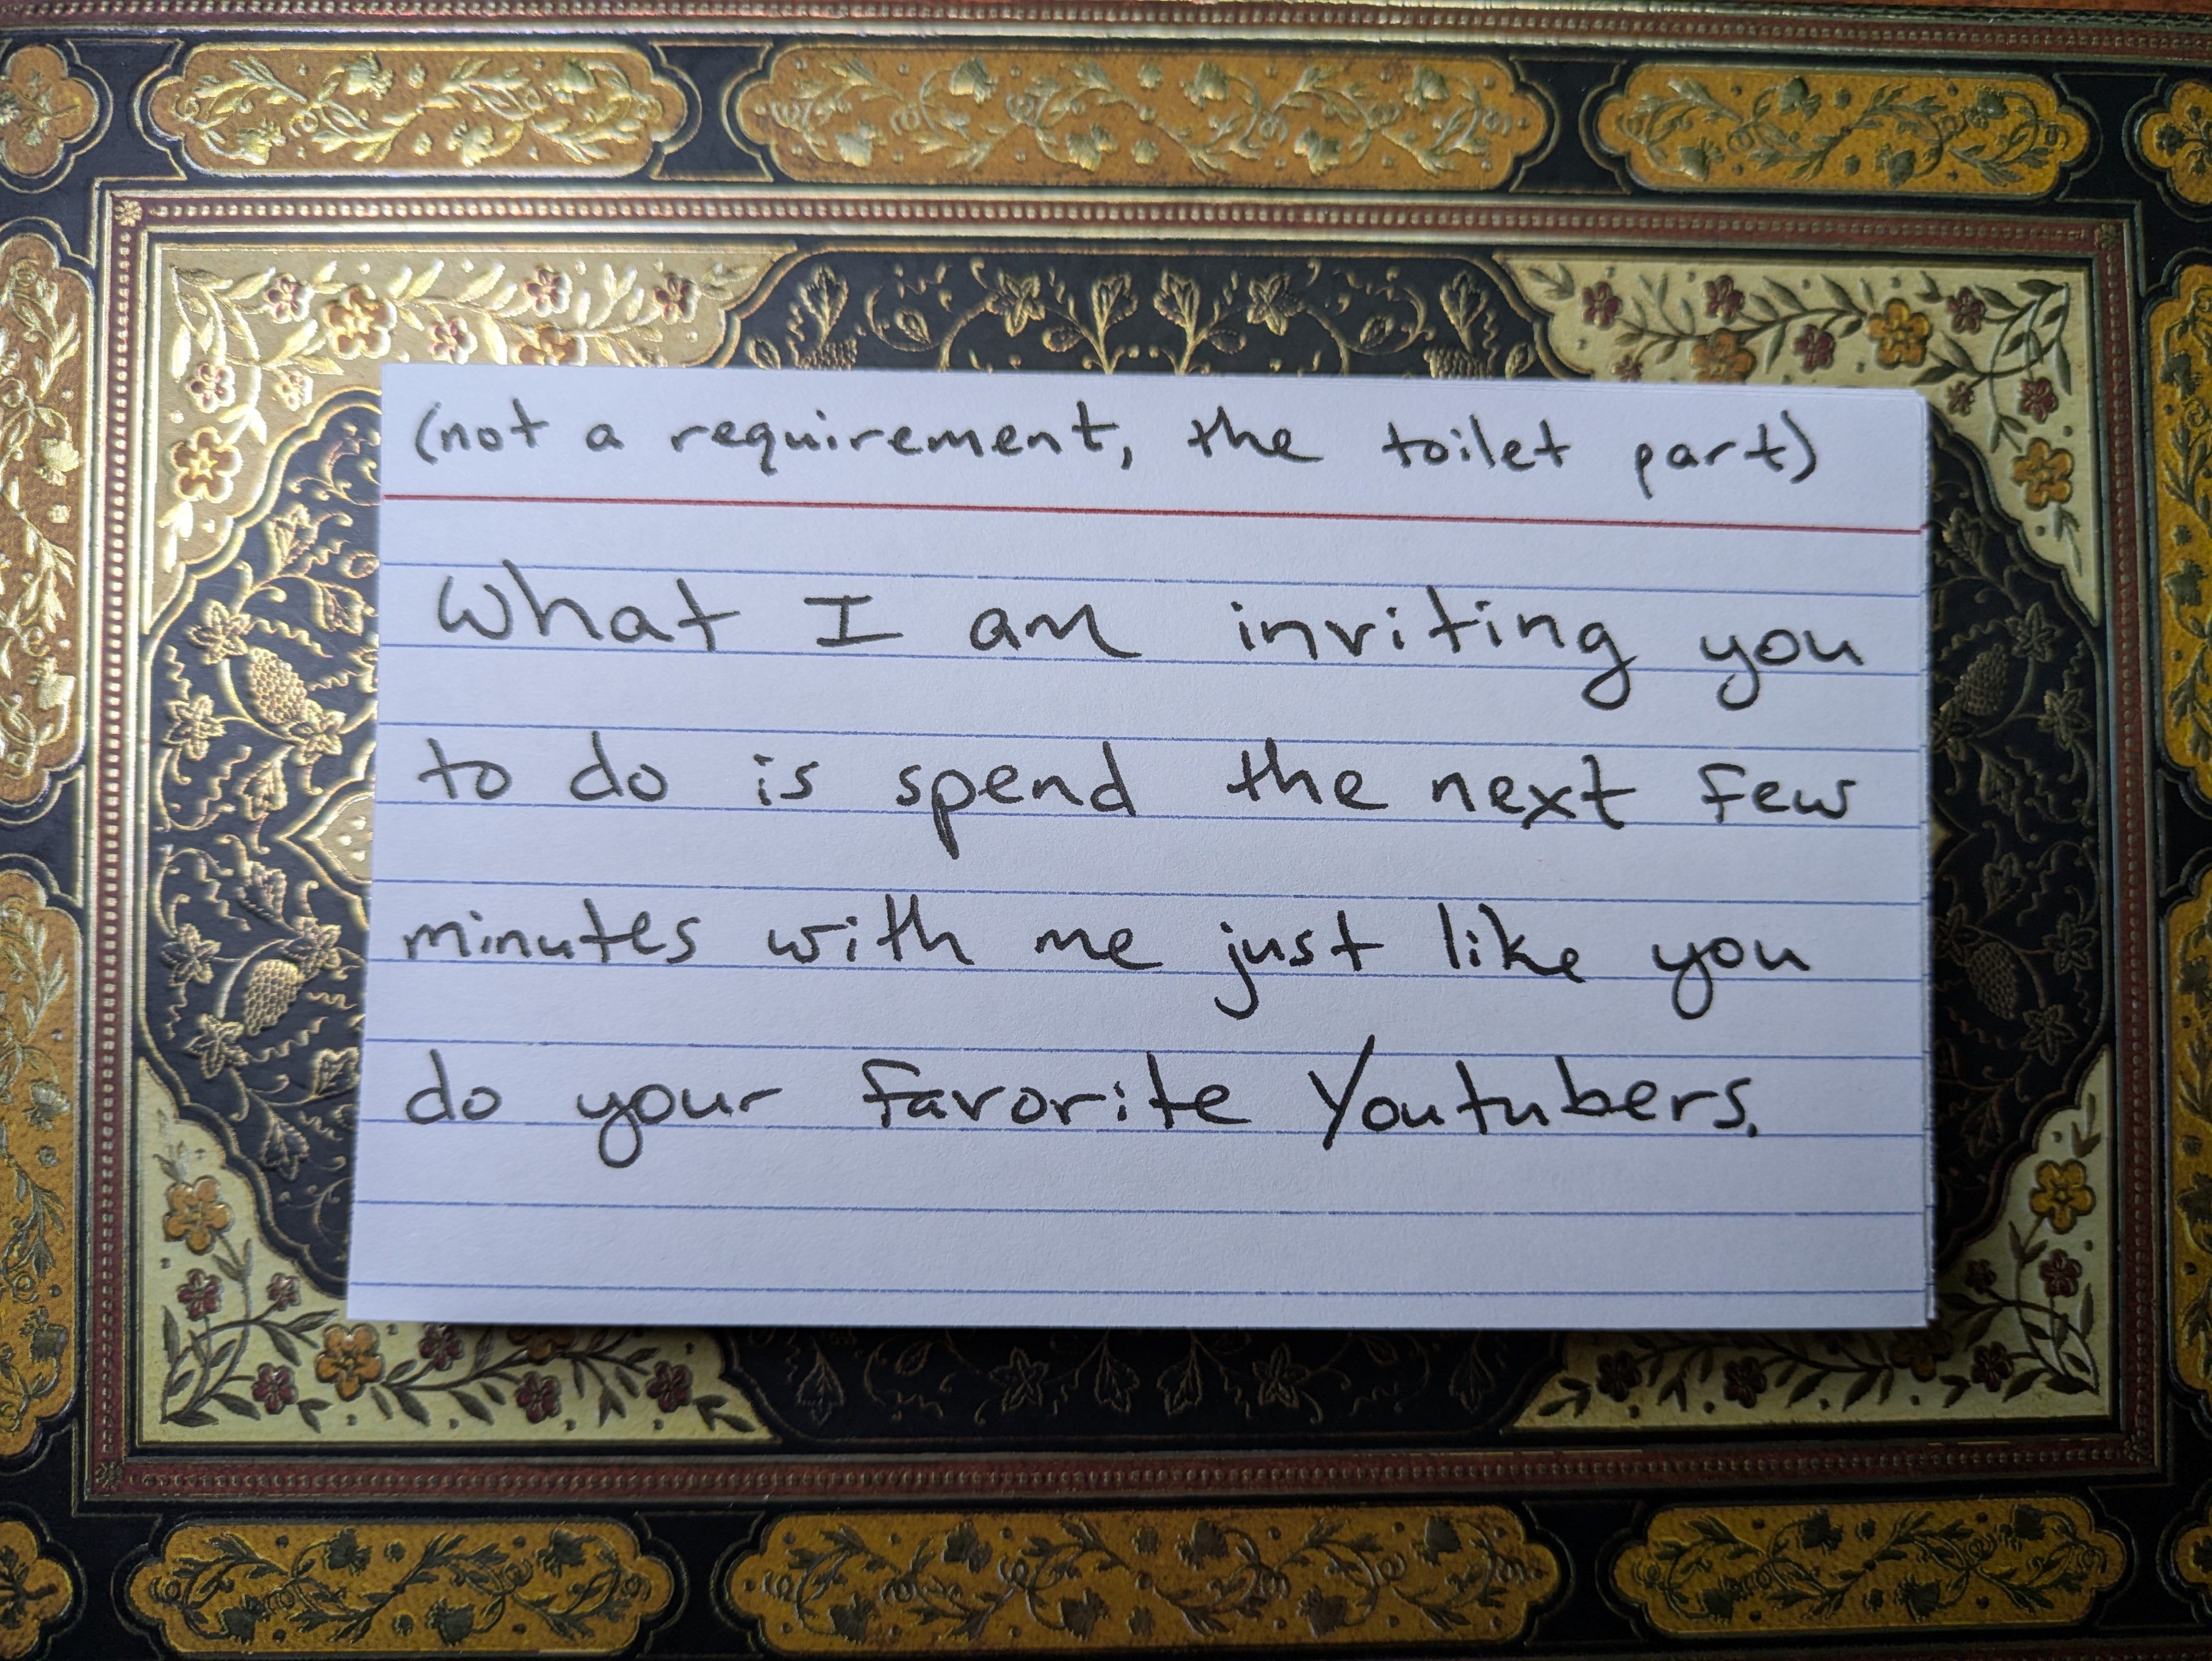 (not a requirement, the toilet part)
What I am inviting you
to do is spend the next few
minutes with me just like you
do your favorite Youtubers.